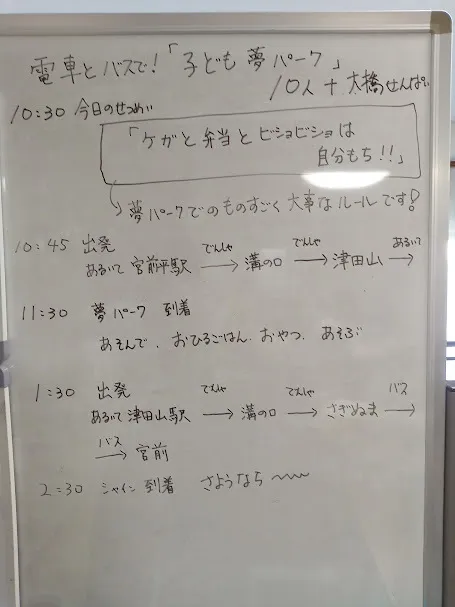 電車とバスで!「子ども夢パーク」
10人+大橋せんぱい
10:30 今日のせつめい
「ケガと弁当とビショビショは
自分もち!!」
→夢パークでのものすごく大事なルールです!
10:45 出発
でんしゃ でんしゃ あるいて
あるいて 宮前平駅 → 溝の口 → 津田山 →
11:30 夢パーク 到着
あそんで、おひるごはん、おやつ、あそぶ
1:30 出発
でんしゃ でんしゃ バス
あるいて 津田山駅 → 溝の口 → さぎぬま →
バス
→ 宮前
2:30 シャイン 到着 さようなら〜〜〜